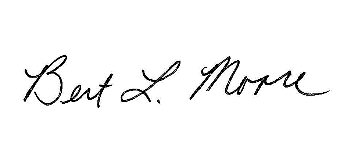 Bert L. Moore